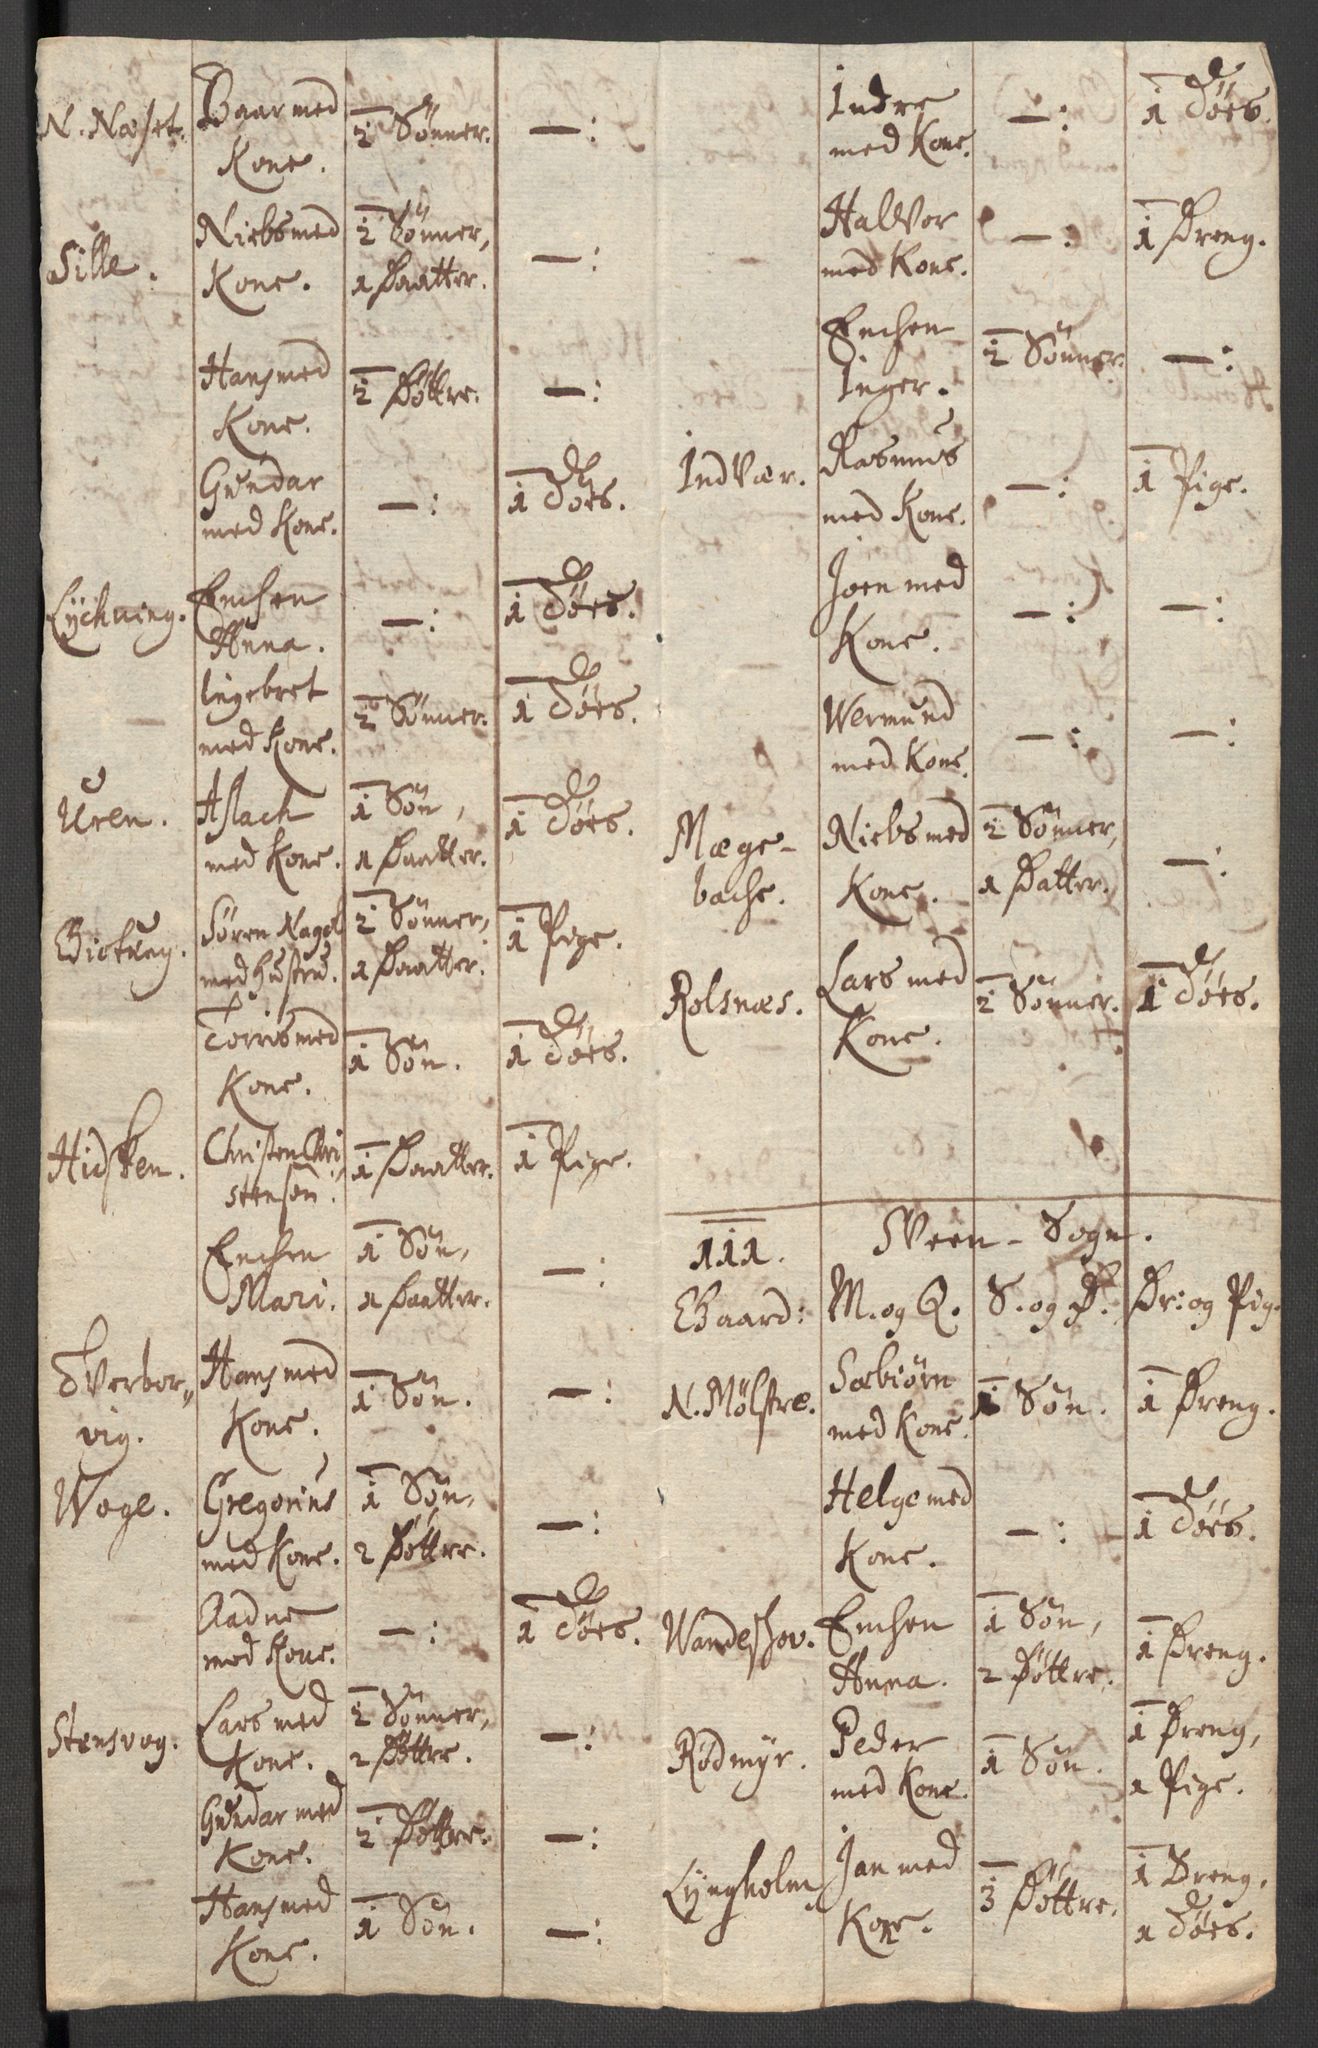 N. Næset.
Baar med
Kone.
2 Sönner.
—:
Sille.
Niels med
Kone.
2 Sönner,
1 Daatter.
—:
Hans med
Kone.
2 Döttre.
—:
Gundar
med Kone.
—:
1 Töes.
Lychning.
Enchen
Anna.
—:
1 Töes.
—
Ingebret
med Kone.
2 Sönner.
1 Töes.
Uren.
Aslach
med Kone.
1 Sön,
1 Daatter.
1 Töes.
Søren Nagel
med Hustru.
2 Sönner,
1 Daatter.
1 Pige.
Torris med
Kone.
1 Sön.
1 Töes.
Hidsken.
Christen Chri
stensen.
1 Daatter.
1 Pige.
Enchen
Mari.
1 Sön,
1 Daatter.
—:
Tverbor„
vig.
Hans med
Kone.
1 Sön.
—:
Woge.
Gregorius
med Kone.
1 Sön,
2 Döttre.
—:
Aadne
med Kone.
—:
1 Töes.
Stensvog.
Lars med
Kone.
2 Sönner,
2 Döttre.
—:
Gundar med
Kone.
2 Döttre.
—:
Hans med
Kone.
1 Sön.
—:
Indre
med Kone.
—:
1 Töes.
Halvor
med Kone.
—:
1 Dreng.
Enchen
Inger.
2 Sönner.
—:
Indvær.
Rasmus
med Kone.
—:
1 Pige.
Joen med
Kone.
—:
—:
Wermund
med Kone.
—:
—:
Mæge-
bache.
Niels med
Kone.
2 Sönner,
1 Datter.
—:
Rolsnæs.
Lars med
Kone.
2 Sönner.
1 Töes.
111.
Sveen - Sogn.
Gaard:
M. og Q.
S. og D.
Dr: og Pig.
N. Mølstre.
Sæbiørn
med Kone.
1 Sön.
1 Dreng.
Helge med
Kone.
—:
1 Töes.
Wandeshov.
Enchen
Anna.
1 Sön,
2 Döttre.
1 Dreng.
Rødmyr.
Peder
med Kone.
1 Sön.
1 Dreng,
1 Pige.
Lyngholm
Jan med
Kone.
3 Döttre.
1 Dreng,
1 Töes.